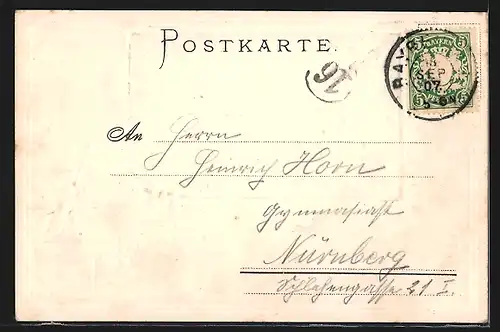 POSTKARTE.
BAYERN
5
5
BAY
13
SEP
07
16
An Herrn
Heinrich Horn
Gymnasiast
Nürnberg
Schlehengasse 21 I.